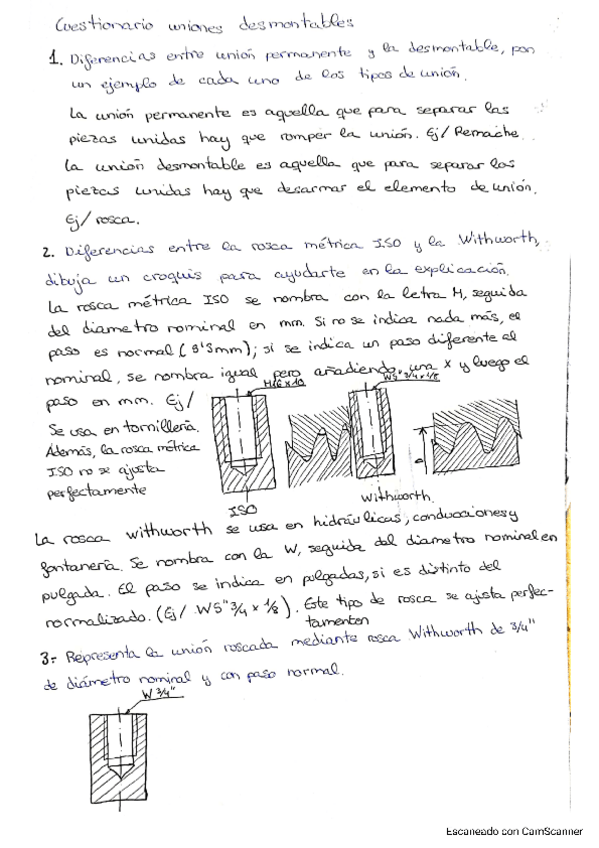 Cuestionario uniones desmontables
1. Diferencias entre unión permanente y la desmontable, pon
un ejemplo de cada uno de los tipos de unión.
La unión permanente es aquella que para separar las
piezas unidas hay que romper la unión. Ej/ Remache
La unión desmontable es aquella que para separar las
piezas unidas hay que desarmar el elemento de unión.
Ej/ rosca.
2. Diferencias entre la rosca métrica ISO y la Withworth,
dibuja un croquis para ayudarte en la explicación.
La rosca métrica ISO se nombra con la letra M, seguida
del diametro nominal en mm. Si no se indica nada más, el
paso es normal (3'3mm); si se indica un paso diferente al
nominal, se nombra igual pero añadiendo una x y luego el
paso en mm. Ej/
M16 x 10
W5" 3/4 x 1/8
Se usa en tornillería.
Además, la rosca métrica
ISO no se ajusta
perfectamente
ISO
Withworth.
La rosca withworth se usa en hidráulicas, conducciones y
fontanería. Se nombra con la W, seguida del diametro nominal en
pulgada. El paso se indica en pulgadas, si es distinto del
normalizado. (Ej/ W5" 3/4 x 1/8). Este tipo de rosca se ajusta perfec-
tamenten
3.- Representa la unión roscada mediante rosca Withworth de 3/4"
de diámetro nominal y con paso normal.
W 3/4"
Escaneado con CamScanner